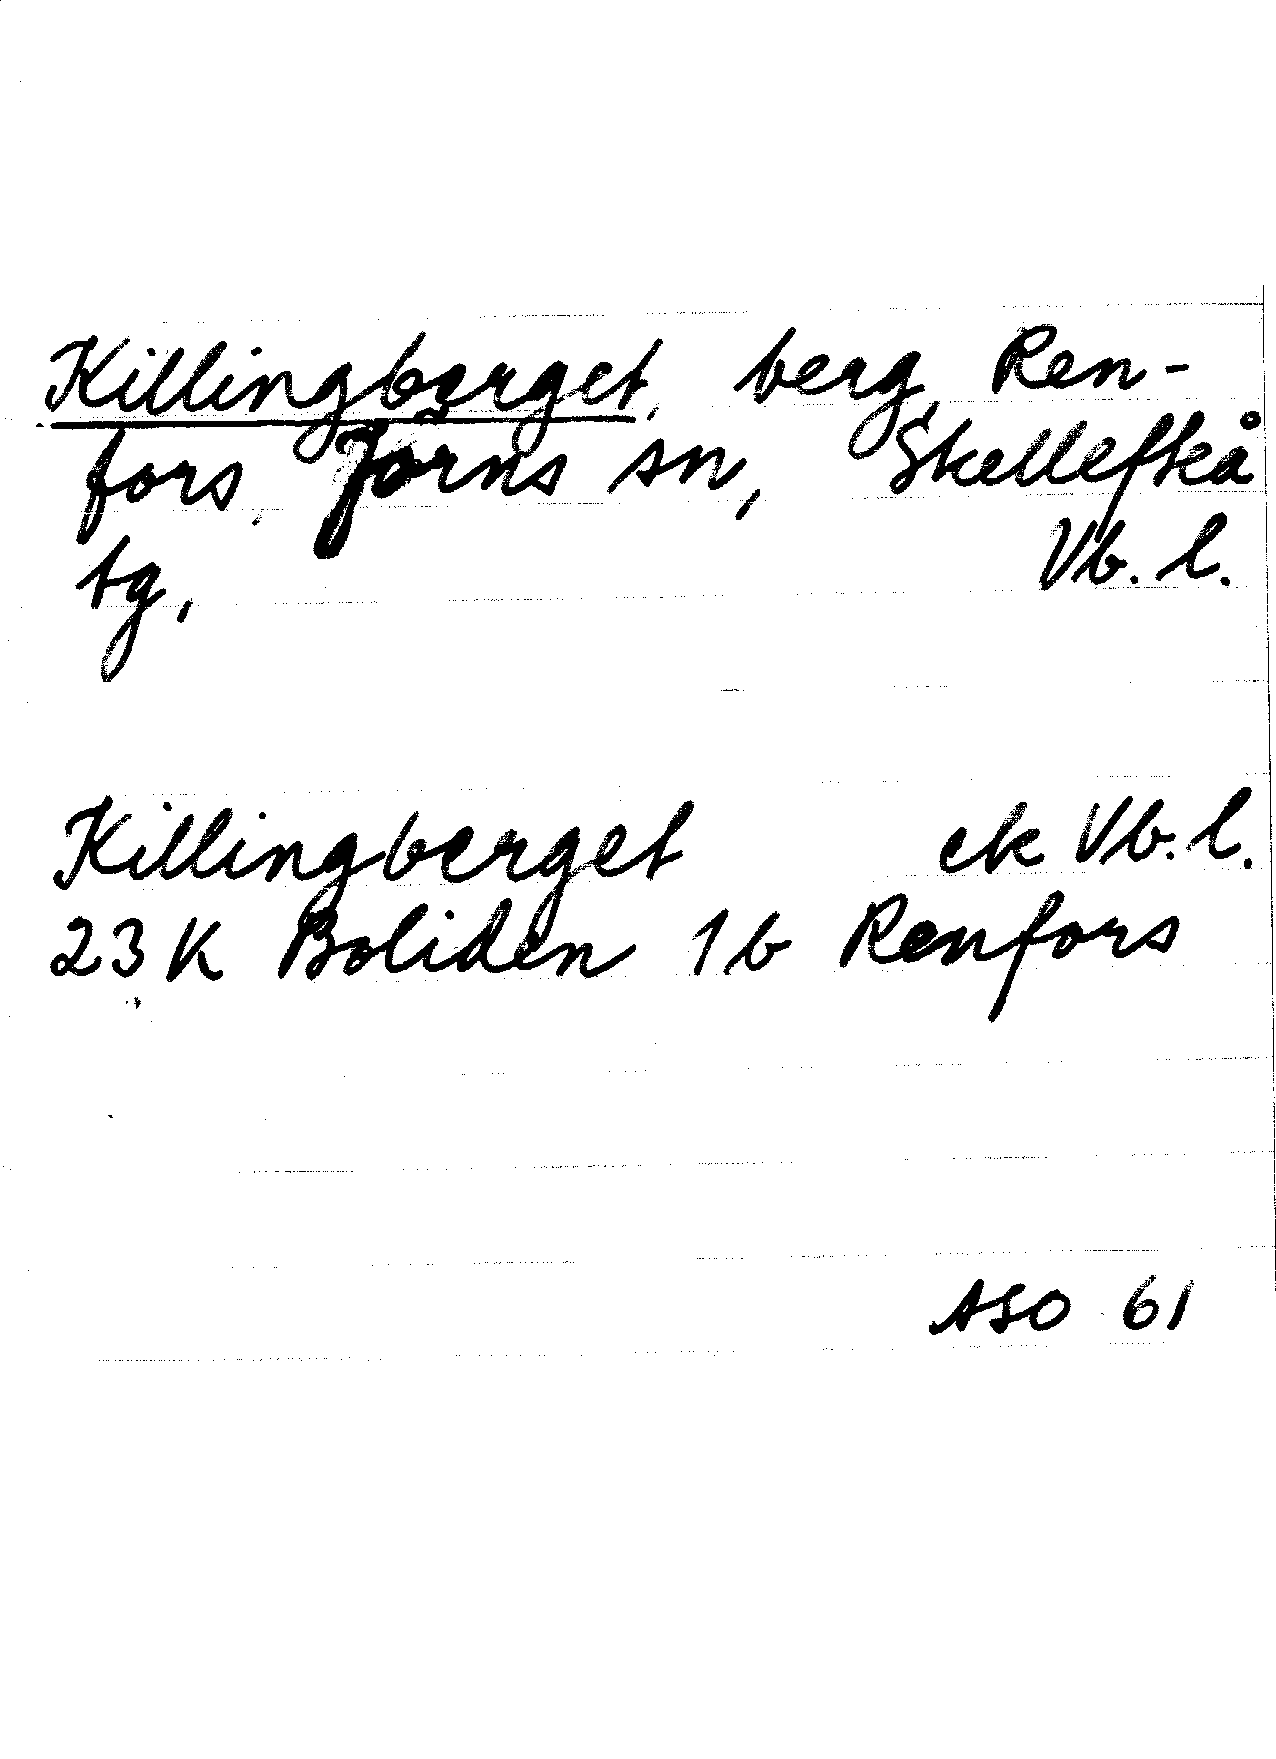 Killingberget, berg, Ren-
fors, Jörns sn, Skellefteå
tg, Vb. l.
Killingberget ek Vb. l.
23 K Boliden 1b Renfors
ASO 61